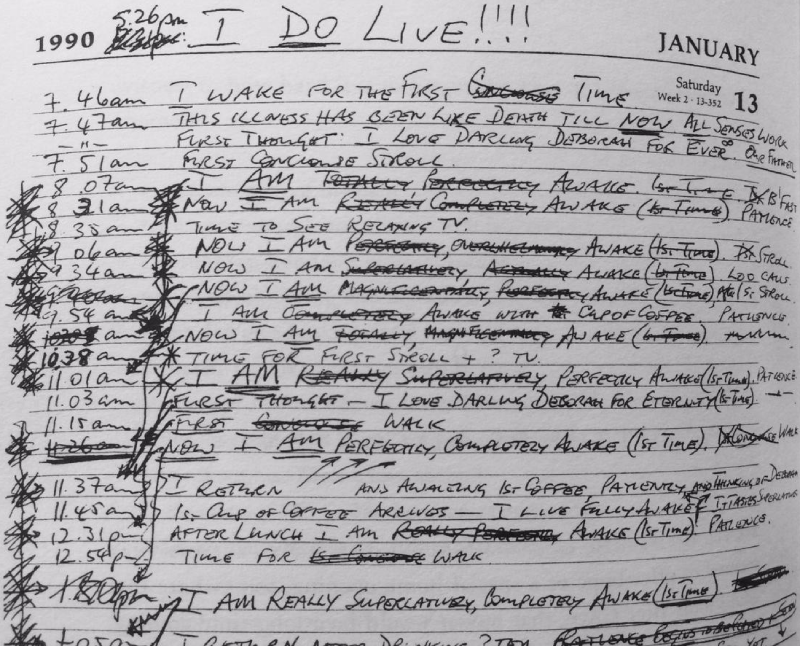 5.26pm
I DO LIVE!!!!
1990
JANUARY
Saturday
Week 2 · 13-352
13
7.46am I WAKE FOR THE FIRST CONSCIOUSE TIME
7.47am THIS ILLNESS HAS BEEN LIKE DEATH TILL NOW ALL SENSES WORK
—"— FIRST THOUGHT· I LOVE DARLING DEBORAH FOR EVER. OUR FATHER
7.51am FIRST CONCIOUSE STROLL.
8.07am I AM TOTALLY PERFECTLY AWAKE. 1st TIME. B'FAST
8 31am NOW I AM REALLY COMPLETELY AWAKE (1st TIME) PATIENCE.
8 35am TIME TO SEE RELAXING TV.
9 06am NOW I AM PERFECTLY, OVERWHELMINGLY AWAKE (1st TIME) 1st STROLL.
9.34am NOW I AM SUPERLATIVELY ACTUALLY AWAKE (1st TIME) LOO CALL.
NOW I AM MAGNIFICENTALLY, PERFECTLY AWAKE (1st TIME) 1st STROLL.
9.54am I AM COMPLETELY AWAKE WITH CUP OF COFFEE. PATIENCE.
NOW I AM TOTALLY, MAGNIFICENTALLY AWAKE (1st TIME).
10.38am TIME FOR FIRST STROLL + ? TV.
11.01am I AM REALLY SUPERLATIVELY, PERFECTLY AWAKE (1st TIME). PATIENCE
11.03am FIRST THOUGHT — I LOVE DARLING DEBORAH FOR ETERNITY (1st TIME). —"—
11.15am FIRST CONCIOUSE WALK
11.26am NOW I AM PERFECTLY, COMPLETELY AWAKE (1st TIME). CONCIOUSE WALK
11.37am I RETURN AND AWAITING 1st COFFEE, PATIENTLY, AND THINKING OF DEBORAH
11.45am 1st CUP OF COFFEE ARRIVES — I LIVE FULLY AWAKE IT TASTES SUPERLATIVE
12.31pm AFTER LUNCH I AM REALLY PERFECTLY AWAKE (1st TIME) PATIENCE.
12.54pm TIME FOR 1st CONCIOUSE WALK
I AM REALLY SUPERLATIVELY, COMPLETELY AWAKE (1st TIME).